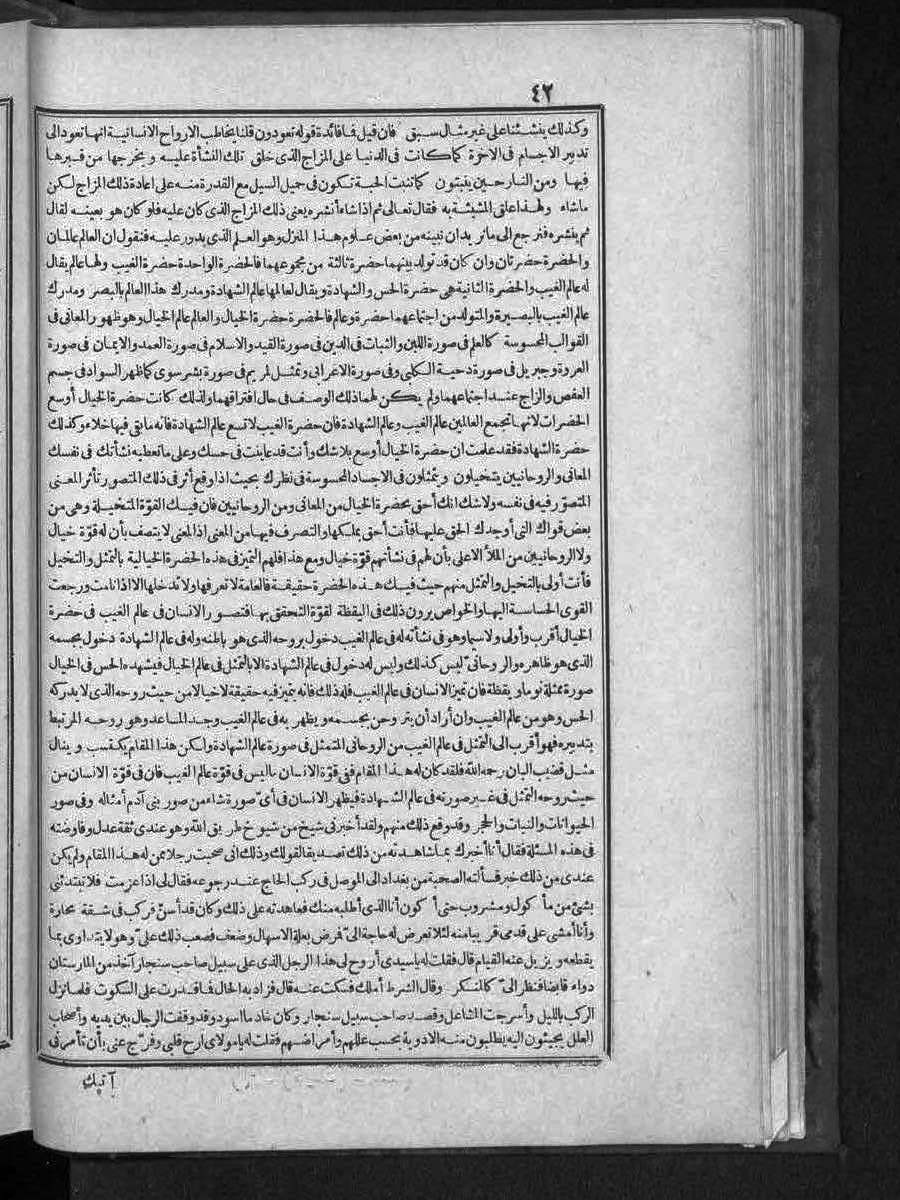 ٤٢
وكذلك ينشئنا على غير مثال سبق فان قيل فما فائدة قوله تعودون قلنا يخاطب الارواح الانسانية انها تعود الى
تدبير الاجسام فى الآخرة كما كانت فى الدنيا على المزاج الذى خلق تلك النشأة عليه ويخرجها من قبرها
فيها ومن النار حين ينبتون كما تنبت الحبة تكون فى حميل السيل مع القدرة منه على اعادة ذلك المزاج لكن
ماشاء ولهذا علق المشيئة به فقال تعالى ثم اذا شاء أنشره يعنى ذلك المزاج الذى كان عليه فلو كان هو بعينه لقال
ثم ينشره فنرجع الى ما نريد ان نبينه من بعض علوم هذا المنزل وهو العلم الذى يدور عليه فنقول ان العالم عالمان
والحضرة حضرتان وان كان قد تولد بينهما حضرة ثالثة من مجموعهما فالحضرة الواحدة حضرة الغيب ولها عالم يقال
له عالم الغيب والحضرة الثانية هى حضرة الحس والشهادة ويقال لعالمها عالم الشهادة ومدرك هذا العالم بالبصر ومدرك
عالم الغيب بالبصيرة والمتولد من اجتماعهما حضرة وعالم فالحضرة حضرة الخيال والعالم عالم الخيال وهو ظهور المعانى فى
القوالب المحسوسة كالعلم فى صورة اللبن والثبات فى الدين فى صورة القيد والاسلام فى صورة العمد والايمان فى صورة
العروة وجبريل فى صورة دحية الكلبى وفى صورة الاعرابى وتمثل لمريم فى صورة بشر سوى كما ظهر السواد فى جسم
العفص والزاج عند اجتماعهما ولم يكن لهما ذلك الوصف فى حال افتراقهما ولذلك كانت حضرة الخيال أوسع
الحضرات لانها تجمع العالمين عالم الغيب وعالم الشهادة فان حضرة الغيب لا تسع عالم الشهادة فانه مابقى فيها خلاء وكذلك
حضرة الشهادة فقد علمت ان حضرة الخيال أوسع بلاشك وأنت قد عاينت فى حسك وعلى ما تعطيه نشأتك فى نفسك
المعانى والروحانيين يتخيلون ويتمثلون فى الاجساد المحسوسة فى نظرك بحيث اذا وقع أثر فى ذلك المتصور تأثر المعنى
المتصوّر فيه فى نفسه ولاشك انك أحق بحضرة الخيال من المعانى ومن الروحانيين فان فيك القوّة المتخيلة وهى من
بعض قواك التى أوجدك الحق عليها فأنت أحق بملكها والتصرف فيها من المعنى اذ المعنى لا يتصف بأن له قوّة خيال
ولا الروحانيين من الملأ الاعلى بأن لهم فى نشأتهم قوّة خيال ومع هذا فلهم التميز فى هذه الحضرة الخيالية بالتمثل والتخيل
فأنت أولى بالتخيل والتمثل منهم حيث فيك هذه الحضرة حقيقة فالعامة لا تعرفها ولا تدخلها الا اذا نامت ورجعت
القوى الحساسة اليها والخواص يرون ذلك فى اليقظة لقوّة التحقق بها فتصور الانسان فى عالم الغيب فى حضرة
الخيال أقرب وأولى ولاسيما وهو فى نشأته له فى عالم الغيب دخول بروحه الذى هو باطنه وله فى عالم الشهادة دخول بجسمه
الذى هو ظاهره والروحانىّ ليس كذلك وليس له دخول فى عالم الشهادة الا بالتمثل فى عالم الخيال فيشهده الحس فى الخيال
صورة ممثلة نوما ويقظة فان تميز الانسان فى عالم الغيب فله ذلك فانه يتميز فيه حقيقة لا خيالا من حيث روحه الذى لا يدركه
الحس وهو من عالم الغيب وان أراد أن يتروحن بجسمه ويظهر به فى عالم الغيب وجد المساعد وهو روحه المرتبط
بتدبيره فهو أقرب الى التمثل فى عالم الغيب من الروحانى المتمثل فى صورة عالم الشهادة ولكن هذا المقام يكتسب وينال
مثل قضيب البان رحمه الله فلقد كان له هذا المقام ففى قوّة الانسان ماليس فى قوّة عالم الغيب فان فى قوّة الانسان من
حيث روحه التمثل فى غير صورته فى عالم الشهادة فيظهر الانسان فى أىّ صورة شاء من صور بنى آدم أمثاله وفى صور
الحيوانات والنبات والحجر وقد وقع ذلك منهم ولقد أخبرنى شيخ من شيوخ طريق الله وهو عندى ثقة عدل وفاوضته
فى هذه المسئلة فقال أنا أخبرك بما شاهدته من ذلك تصديقا لقولك وذلك انى صحبت رجلا ممن له هذا المقام ولم يكن
عندى من ذلك خبر فسألته الصحبة من بغداد الى الموصل فى ركب الحاج عند رجوعه فقال لى اذا عزمت فلا تبتدئنى
بشئ من مأكول ومشروب حتى أكون أنا الذى أطلبه منك فعاهدته على ذلك وكان قد أسنّ فركب فى شقة محارة
وأنا أمشى على قدمى قريبا منه لئلا تعرض له حاجة الىّ فمرض بعلة الاسهال وضعف فصعب ذلك علىّ وهو لا يتداوى بما
يقطعه ويزيل عنه القيام قال فقلت له ياسيدى أروح لى هذا الرجل الذى على سبيل صاحب سنجار آخذ من المارستان
دواء قابضا فنظر الىّ كالمنكر وقال الشرط أملك فسكت عنه قال فزاد به الحال فما قدرت على السكوت فلما نزل
الركب بالليل وأسرجت المشاعل وقصد صاحب سبيل سنجار وكان خادما اسود وقد وقفت الرجال بين يديه وأصحاب
العلل يجيئون اليه يطلبون منه الادوية بحسب عللهم وأمراضهم فقلت له يامولاى أرح قلبى وفرّج عنى بأن تأمرنى
آتيك